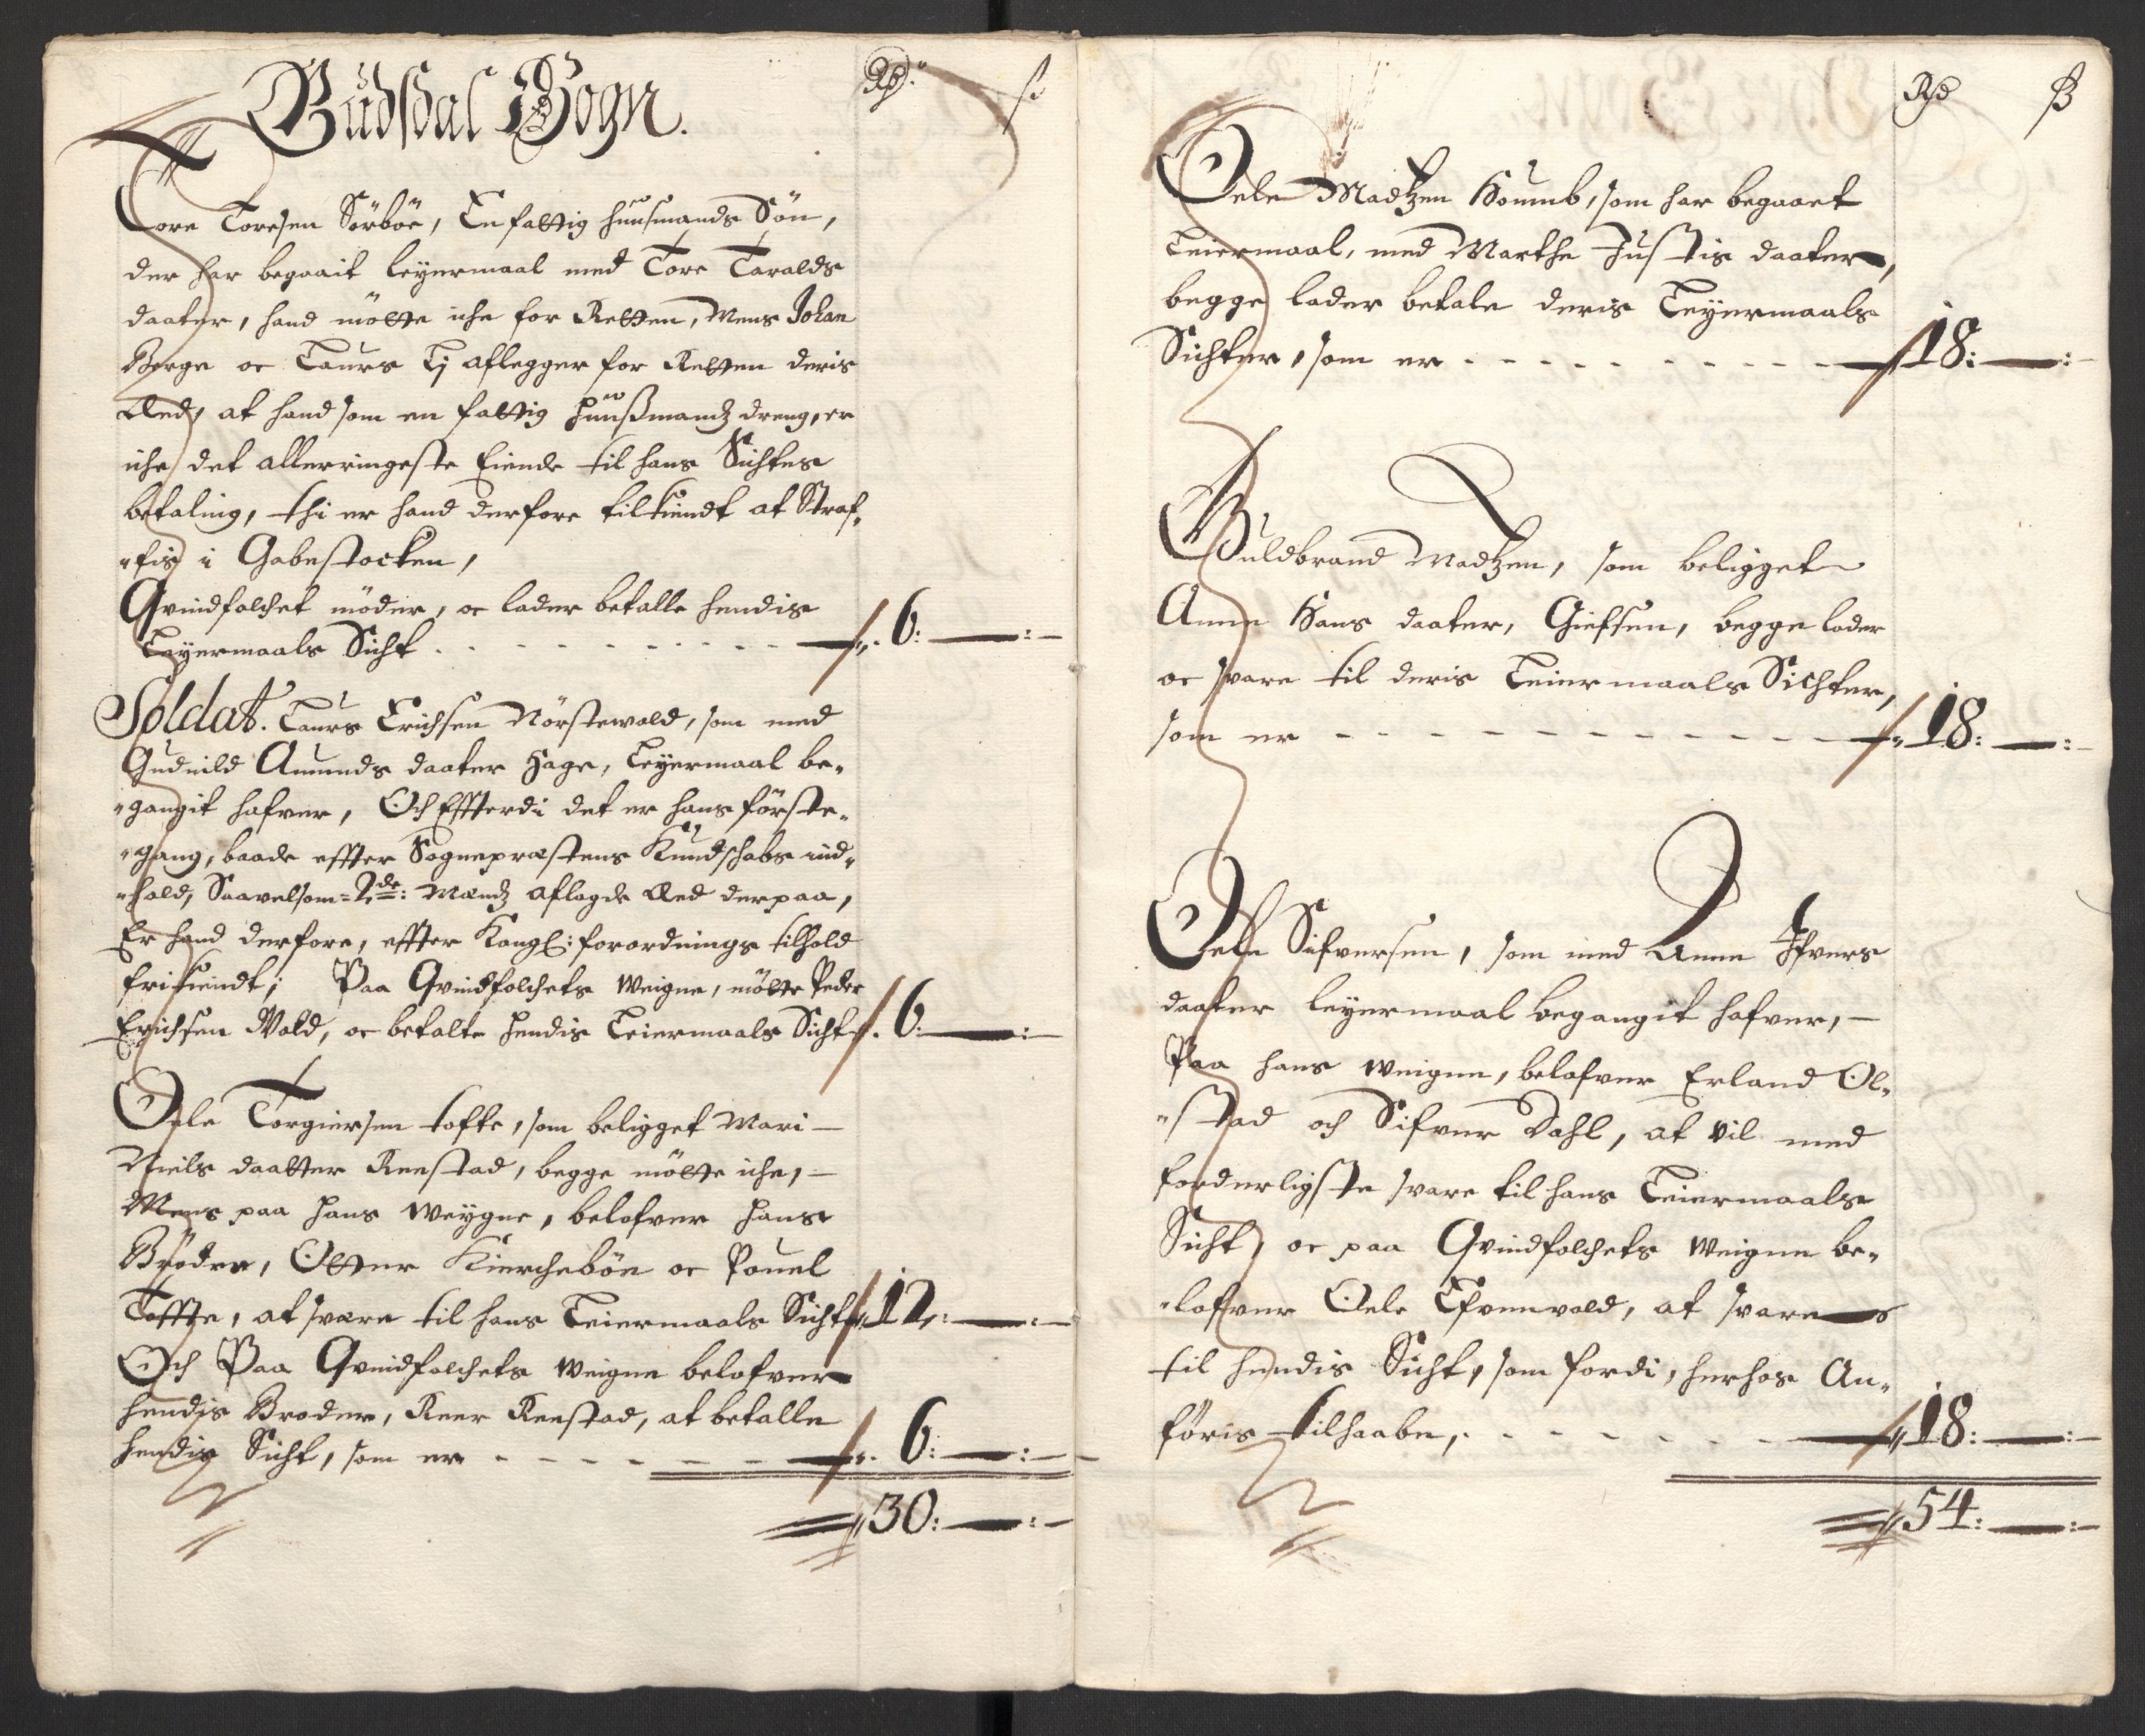 Gudsdal Sogn.
Rd. ß
Tore Toresen Sörböe, En fattig huusmands Sön,
der har begaait leyermaal med Tore Taralds
daater, hand mötte iche for Retten, Mens Johan
Berge oc Laurs Lj aflegger for Retten deris
Aed, at hand som en fattig huusmandz dreng, er
iche det allerringeste Eiende til hans Sichtes
betaling, thi er hand derfore tilkiendt at Straf-
"fis i Gabestocken,
Qvindfolchet möder, oc lader betalle hendis
Leyermaals Sicht - - - 6: — : —
Soldat. Laurs Erichsen Nörstewold, som med
Gudnild Amunds daater Hage, Leyermaal be-
"gangit hafver, Och Effterdi det er hans förste-
"gang, baade effter Sognepræstens Kundschabs ind-
"hold, Saavelsom = 2de: Mændz aflagde Aed derpaa,
Er hand derfore, effter Kongl: forordnings tilhold
frikiendt; Paa Qvindfolchets Weigne, mötte Peder
Erichsen Wold, oc betalte hendis Leiermaals Sicht 6: — : —
Oele Torgiersen tofte, som beligget Mari —
Niels daatter Reestad, begge mötte iche, —
Mens paa hans Weygne, belofver hans
Brödre, Otter Kierchebön oc Pouel
Toffte, at svare til hans Leiermaals Sicht 12: — : —
Och Paa Qvindfolchets Weigne belofver
hendis Broder, Reer Reestad, at betalle
hendis Sicht, som er - - - 6: — : —
30: — : —
Rd ß
Oele Madtzen Houmb, som har begaaet
Leiermaal, med Marthe Justis daater,
begge lader betale deris Leyermaals
Sichter, som er - - - 18: — : —
Guldbrand Madtzen, som beligget
Anne Hans daater, Giefsen, begge lader
oc svare til deris Leiermaals Sichter,
som er - - - 18: — : —
Oele Sifversen, som med Anne Ifvers
daater leyermaal begangit hafver, —
Paa hans Weigne, belofver Erland Ol-
"stad och Sifver Dahl, at vil med
forderligste svare til hans Leiermaals
Sicht, oc paa Qvindfolchets Weigne be-
"lofver Oele Efvenvold, at svare
til hendis Sicht, som fordi, herhos An-
föris tilhaabe, - - - 18: — : —
54: — : —